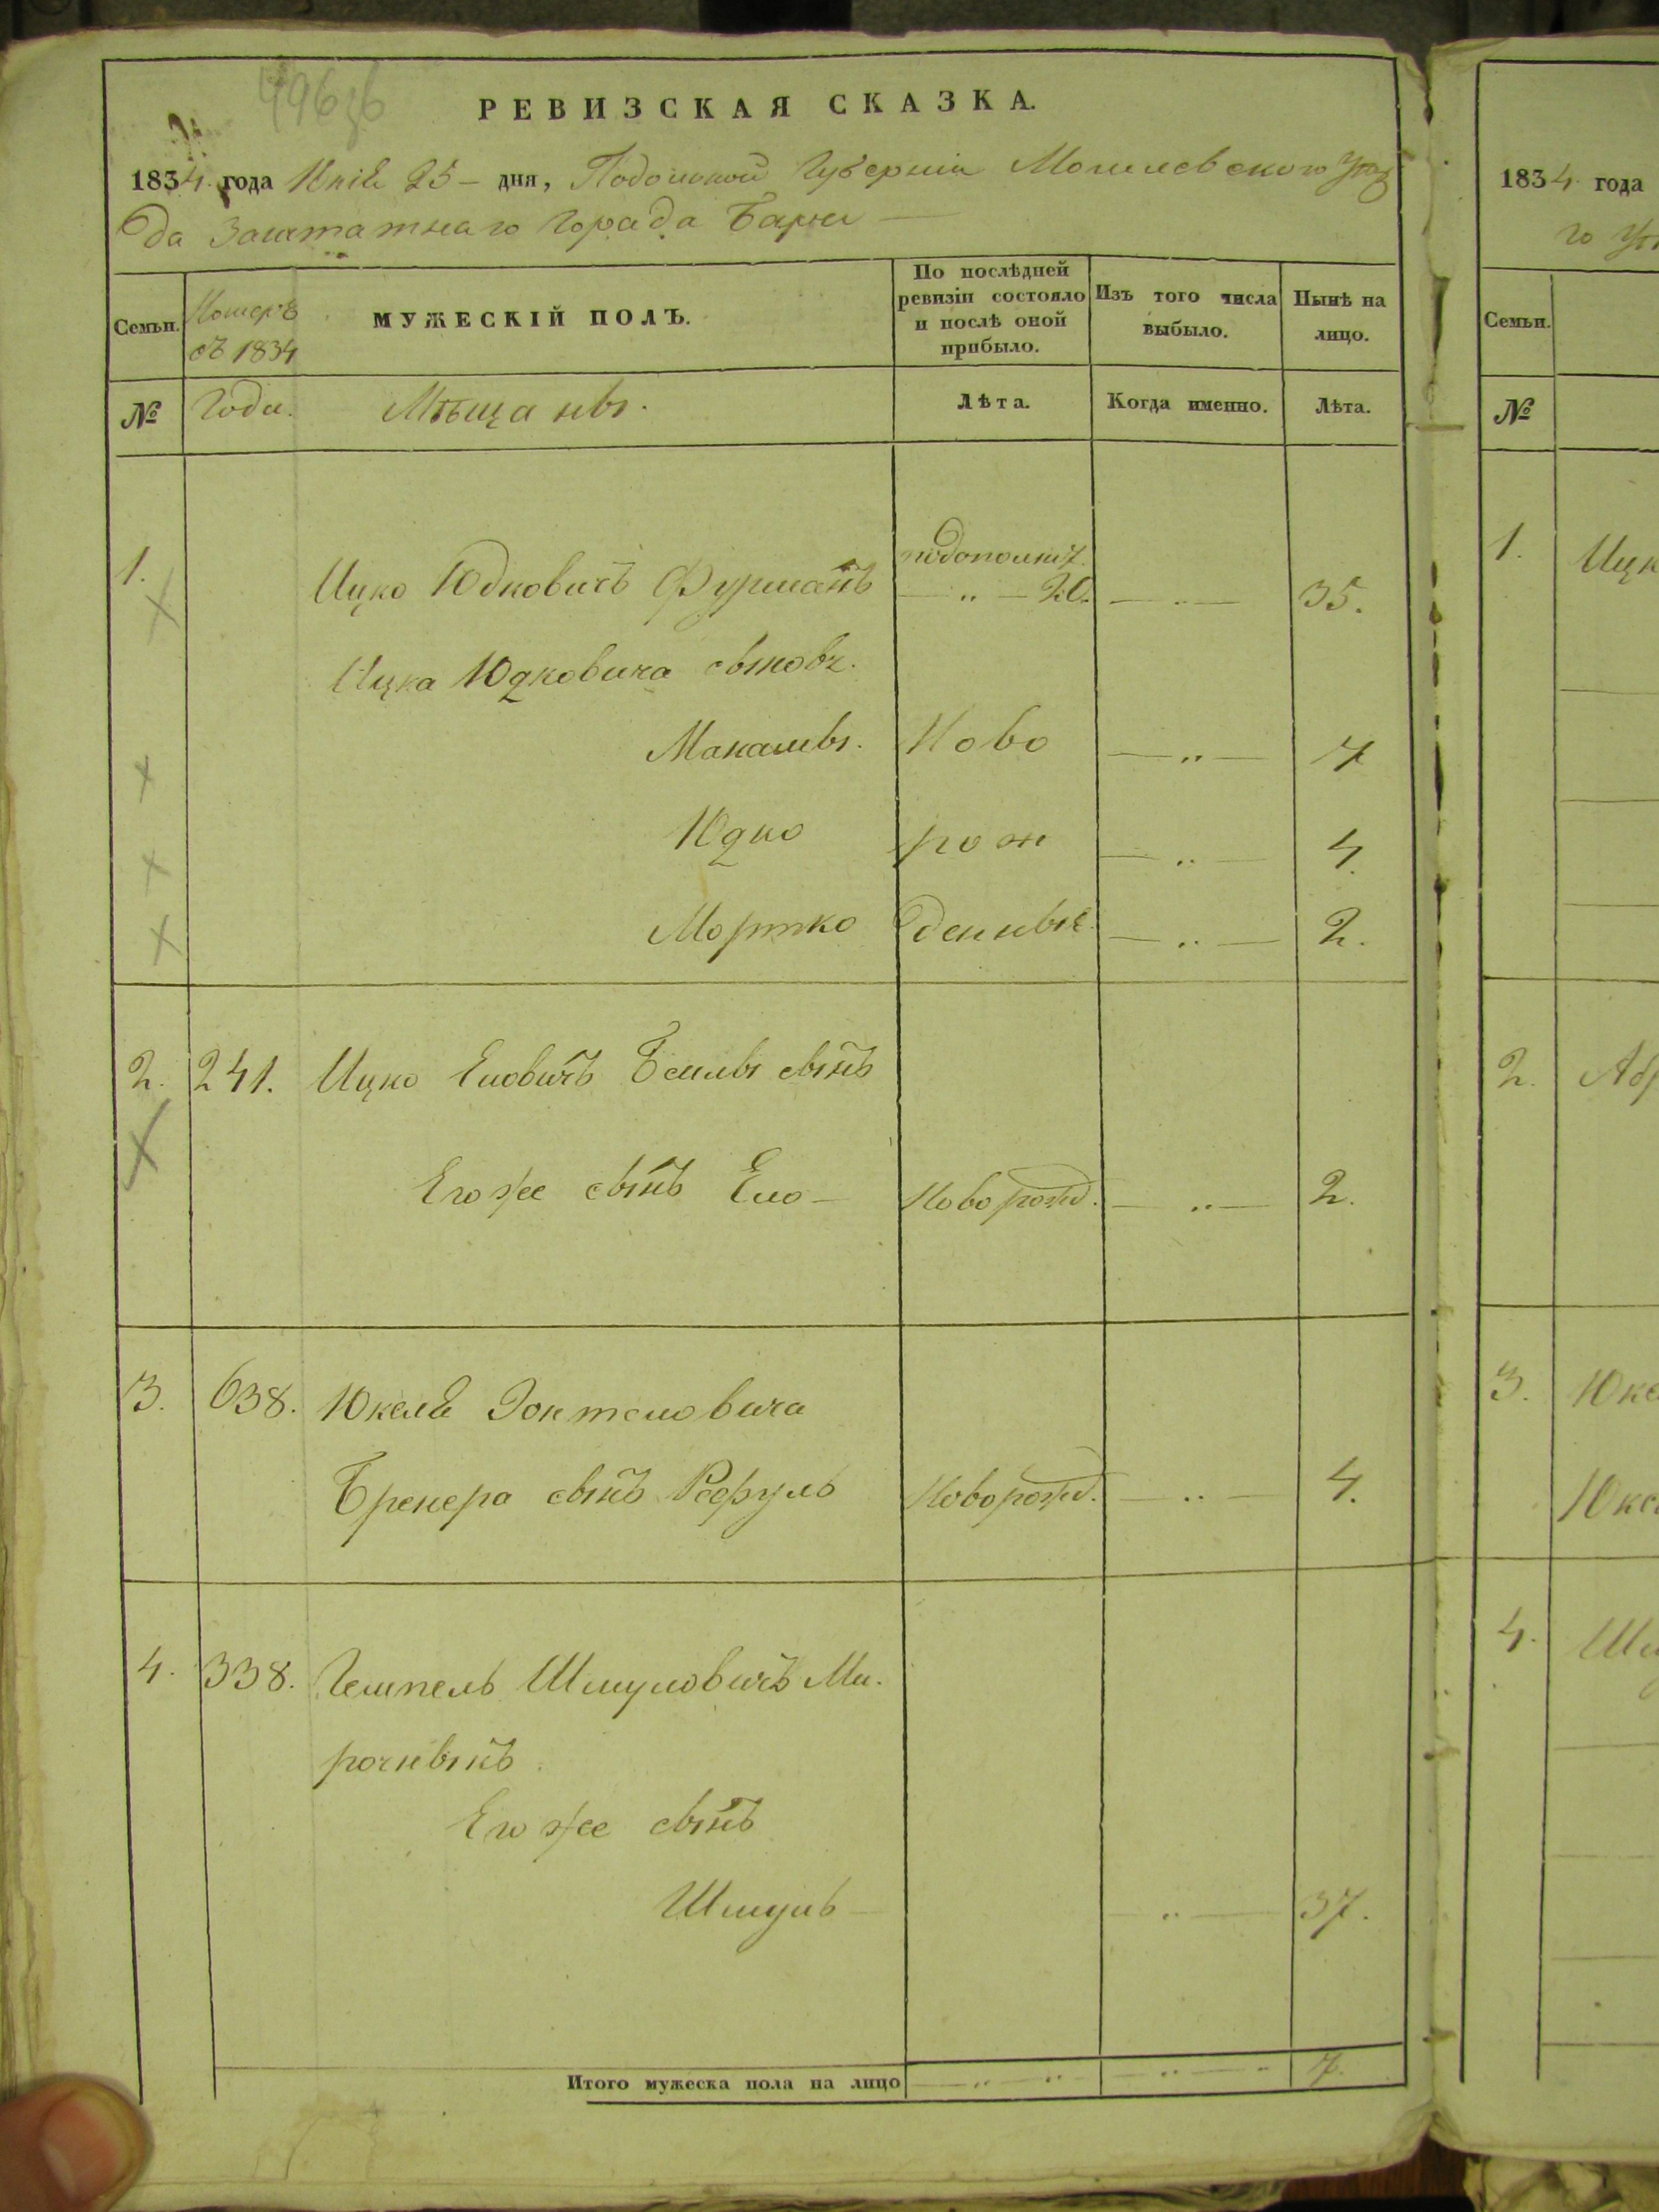 РЕВИЗСКАЯ СКАЗКА.
1834. года Юнiя 25 - дня, Подольской Губернiи Могилевского Уѣз
да Заштатнаго Города Бара
Семьи.
Номеръ
съ 1834
Года.
МУЖЕСКIЙ ПОЛЪ.
По послѣдней
ревизiи состояло
и послѣ оной
прибыло.
Изъ того числа
выбыло.
Нынѣ на
лицо.
№
Мѣщаны.
Лѣта.
Когда именно.
Лѣта.
1. Ицко Юдковичъ Фурманъ 20. 35.
Ицка Юдковича сыновя.
Ново 7
Юдко рож 4.
Мортко денные 2.
2. 241. Ицко Еловичъ сынъ
Его же сынъ Ело Новорожд. 2.
3. 638. Юкеля
сынъ Рефуль Новорожд. 4.
4. 338. Гемпель Шмуловичъ Ми.
рочныкъ.
Его же сынъ
Шмуль 37.
Итого мужеска пола на лицо 7.
1834 года
го Уѣ
Семьи.
№
1. Ицк
2. Аб
3. Юке
Юке
4. Шм